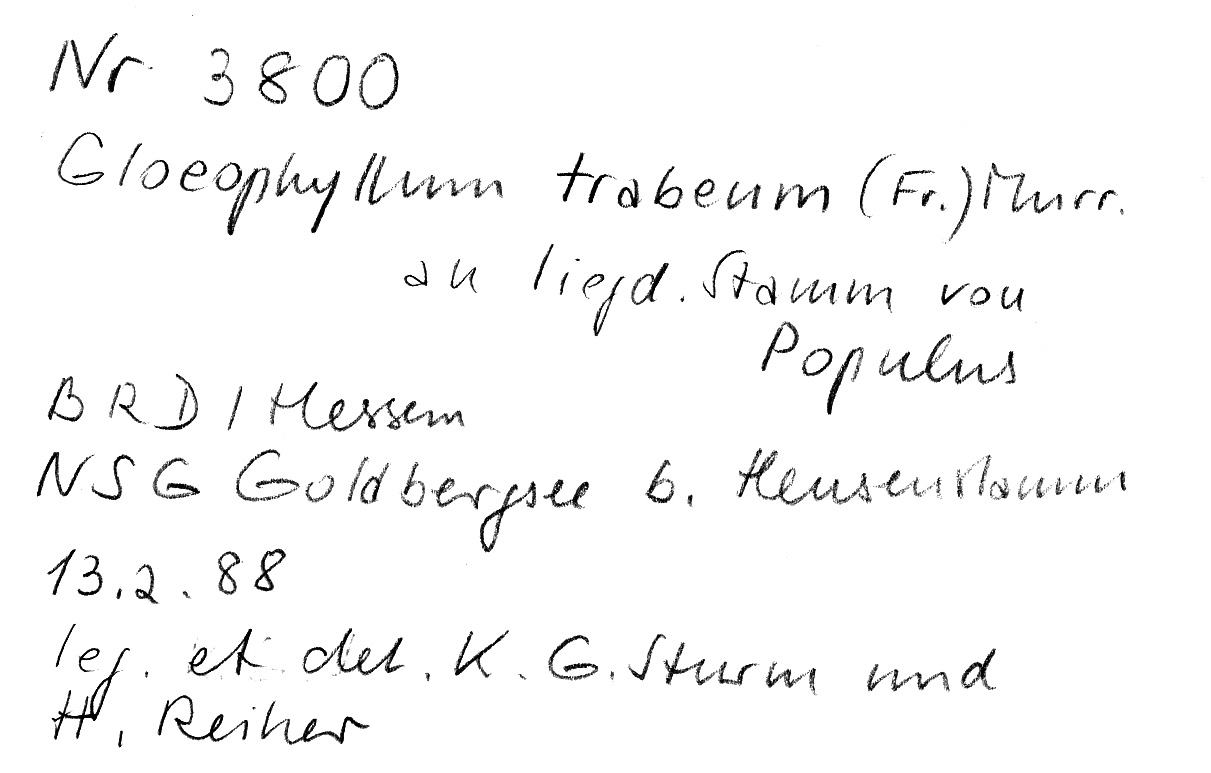 Nr. 3800
Gloeophyllum trabeum (Fr.) Murr.
an liegd. Stamm von
Populus
BRD / Hessen
NSG Goldbergsee b. Heusenstamm
13.2.88
leg. et det. K. G. Sturm und
H. Reiher